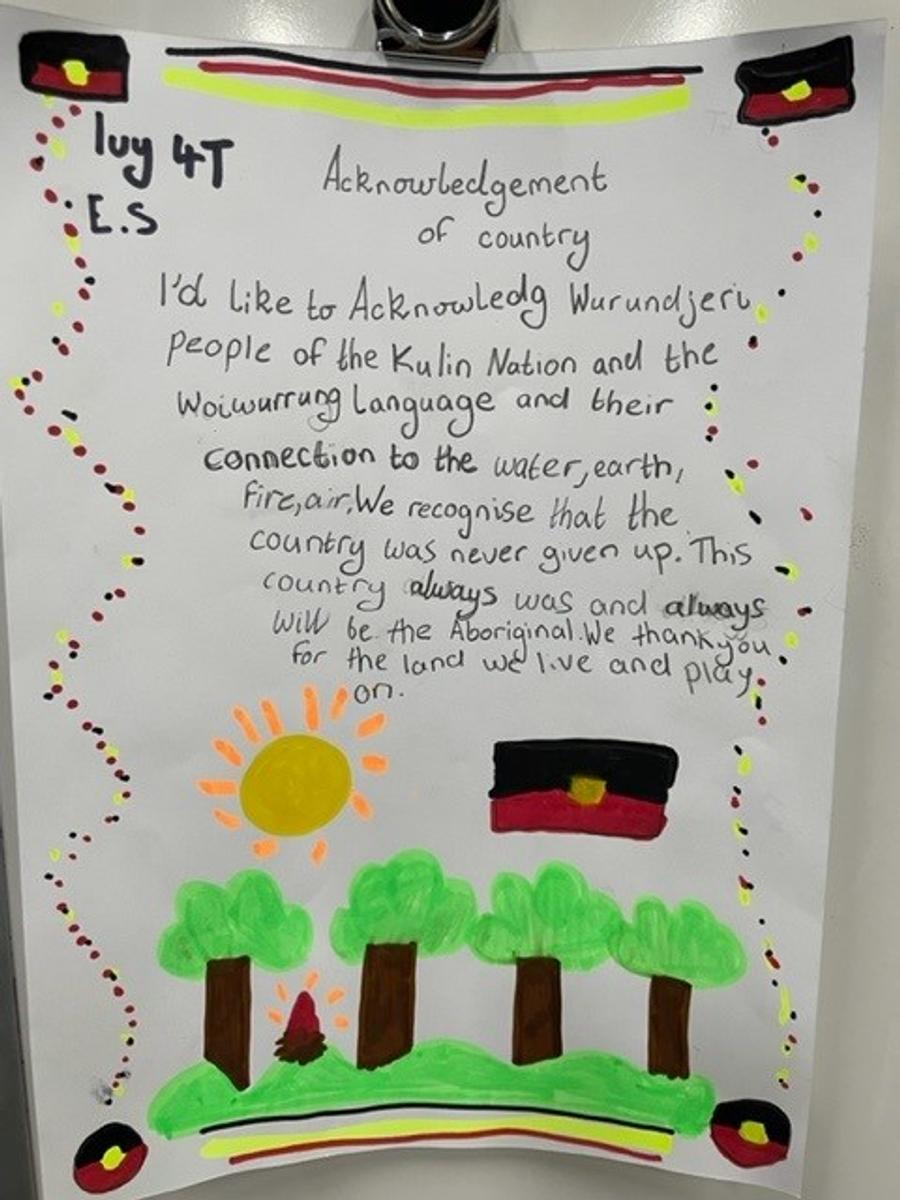 Ivy 4T
E.S
Acknowledgement
of country
I'd like to Acknowledg Wurundjeri
People of the Kulin Nation and the
Woiwurrung Language and their
connection to the water, earth,
fire, air. We recognise that the
country was never given up. This
country always was and always
will be the Aboriginal. We thank you
for the land we live and play
on.